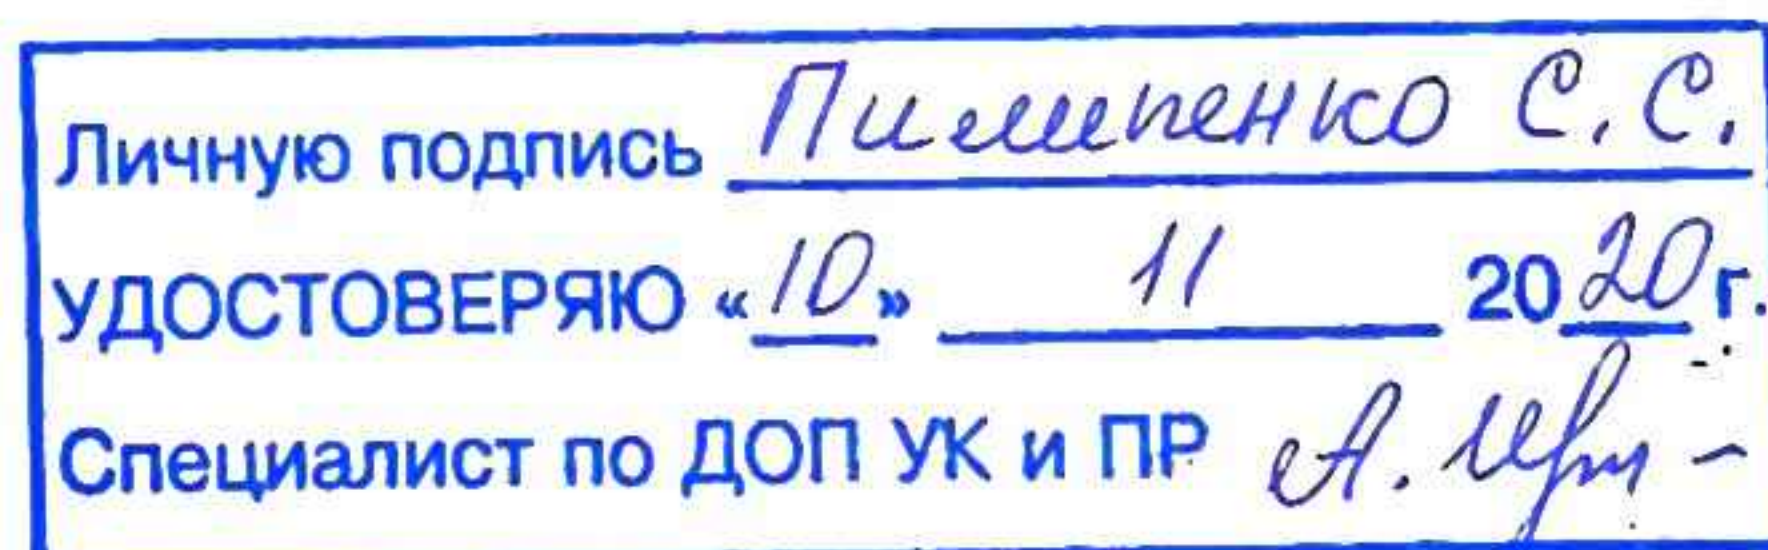 Личную подпись Пилипенко С.С.
УДОСТОВЕРЯЮ «10» 11 2020 г.
Специалист по ДОП УК и ПР А.